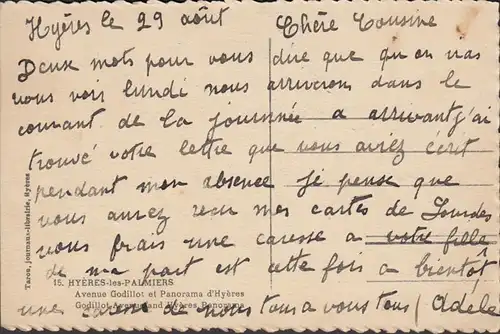 Hyères le 29 août Chère Cousine
Deux mots pour vous dire que qu on iras
vous voir lundi nous arriverons dans le
courant de la journnée a arrivant j'ai
trouvé votre lettre que vous aviez écrit
pendant mon absence je pense que
vous aurez recu mes cartes de Lourdes
vous frais une caresse a votre fille
de ma part est cette fois a bientôt
une caresse de nous tous a vous tous (Adèle
15. HYÈRES-les-PALMIERS
Avenue Godillot et Panorama d'Hyères
Godillot Avenue and Hyères Panorama
Taros, journaux-librairie, Hyères